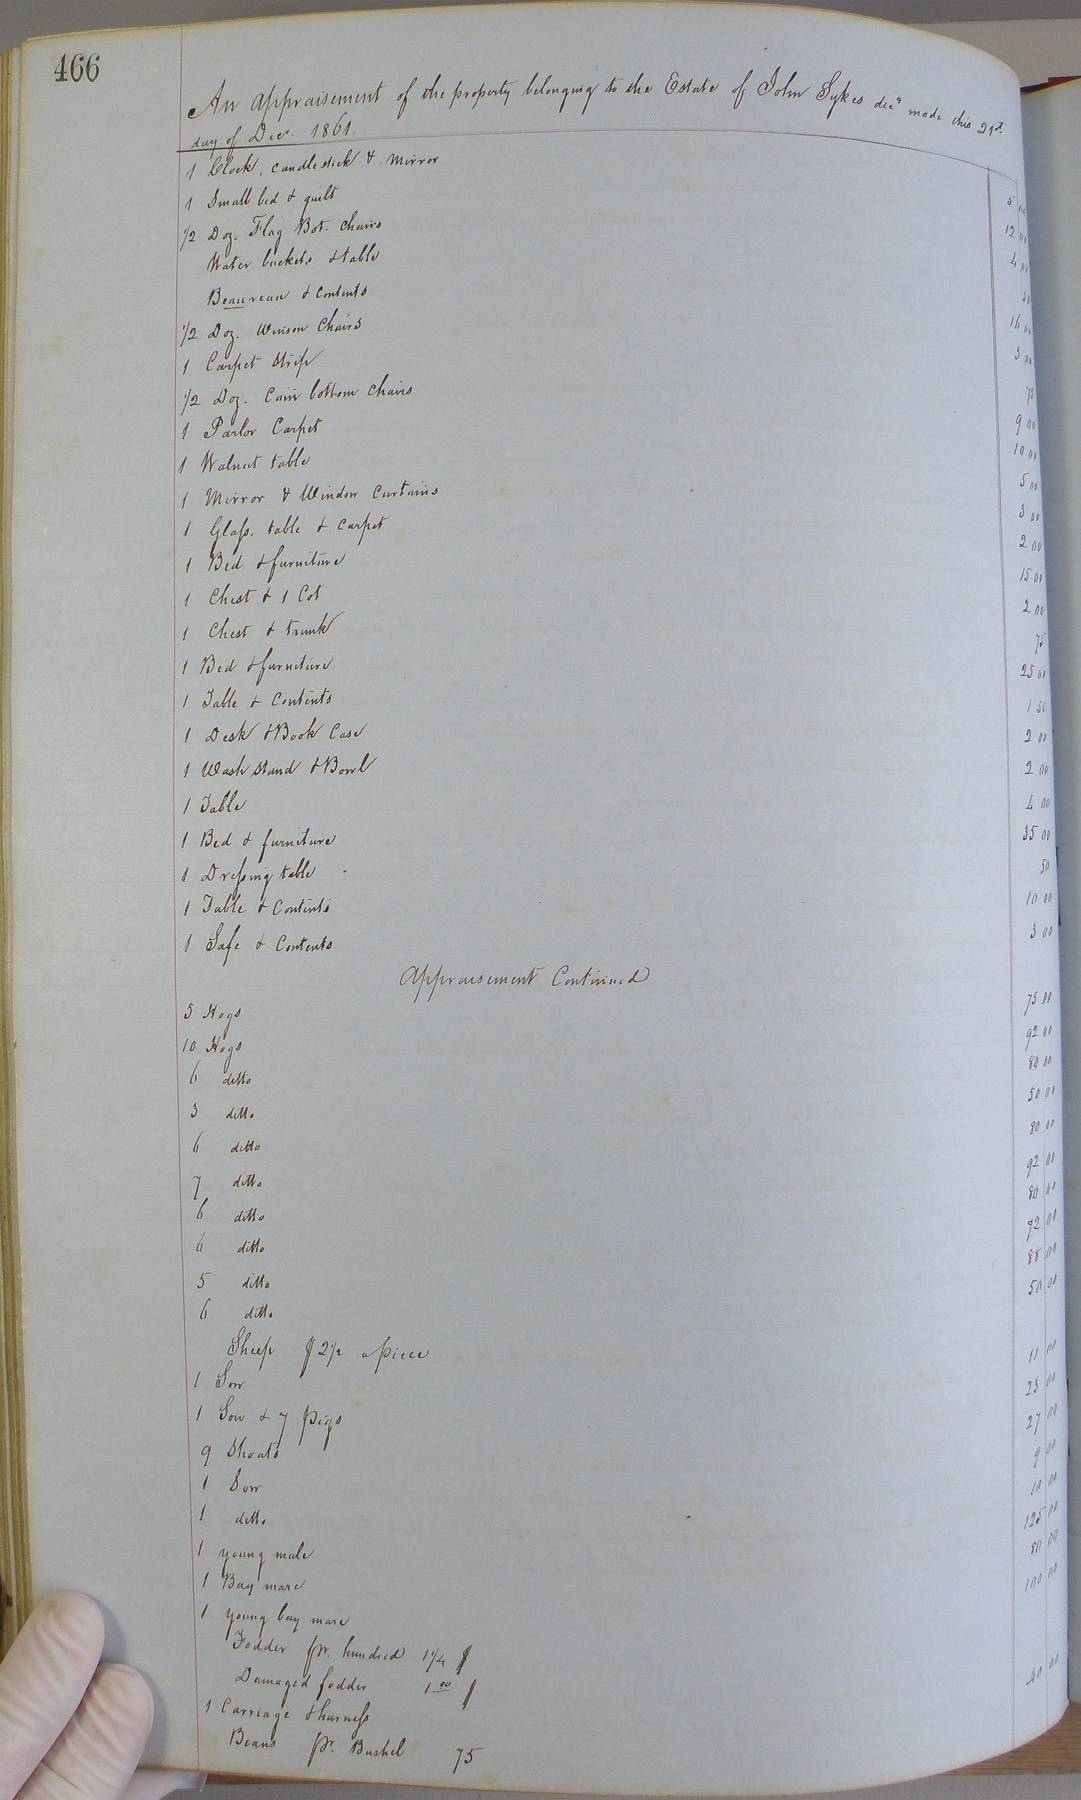 466
An appraisement of the property belonging to the Estate of John Sykes decd made this 21st
day of Decr. 1861.
1 Clock, candlestick & Mirror 5 00
1 Small bed & quilt 12 00
1/2 Doz. Flag Bot. Chairs 4 00
Water buckets & table
Beaureau & Contents 16 00
1/2 Doz. Winson Chairs 3 00
1 Carpet Strip 75
1/2 Doz. Cain bottom chairs 9 00
1 Parlor Carpet 10 00
1 Walnut table 5 00
1 Mirror & Window Curtains 3 00
1 Glass. table & carpet 2 00
1 Bed & furniture 15 00
1 Chest & 1 Cot 2 00
1 Chest & trunk 75
1 Bed & furniture 25 00
1 Table & Contents 1 50
1 Desk & Book Case 2 00
1 Wash stand & Bowl 2 00
1 Table 4 00
1 Bed & furniture 35 00
1 Dressing table 50
1 Table & Contents 10 00
1 Safe & Contents 3 00
Appraisement Continued
5 Hogs 75 00
10 Hogs 92 00
6 ditto 80 00
3 ditto 50 00
6 ditto 80 00
7 ditto 92 00
6 ditto 80 00
6 ditto 72 00
5 ditto 88 00
6 ditto 50 00
Sheep $2 1/2 apiece
1 Sow 11 00
1 Sow & 7 pigs 23 00
9 Shoats 27 00
1 Sow 9 00
1 ditto 10 00
1 young mule 125 00
1 Bay mare 80 00
1 young bay mare 100 00
Fodder pr. hundred 1 1/4 $
Damaged fodder 1 00 $
1 Carriage & harness 40 00
Beans pr. Bushel 75